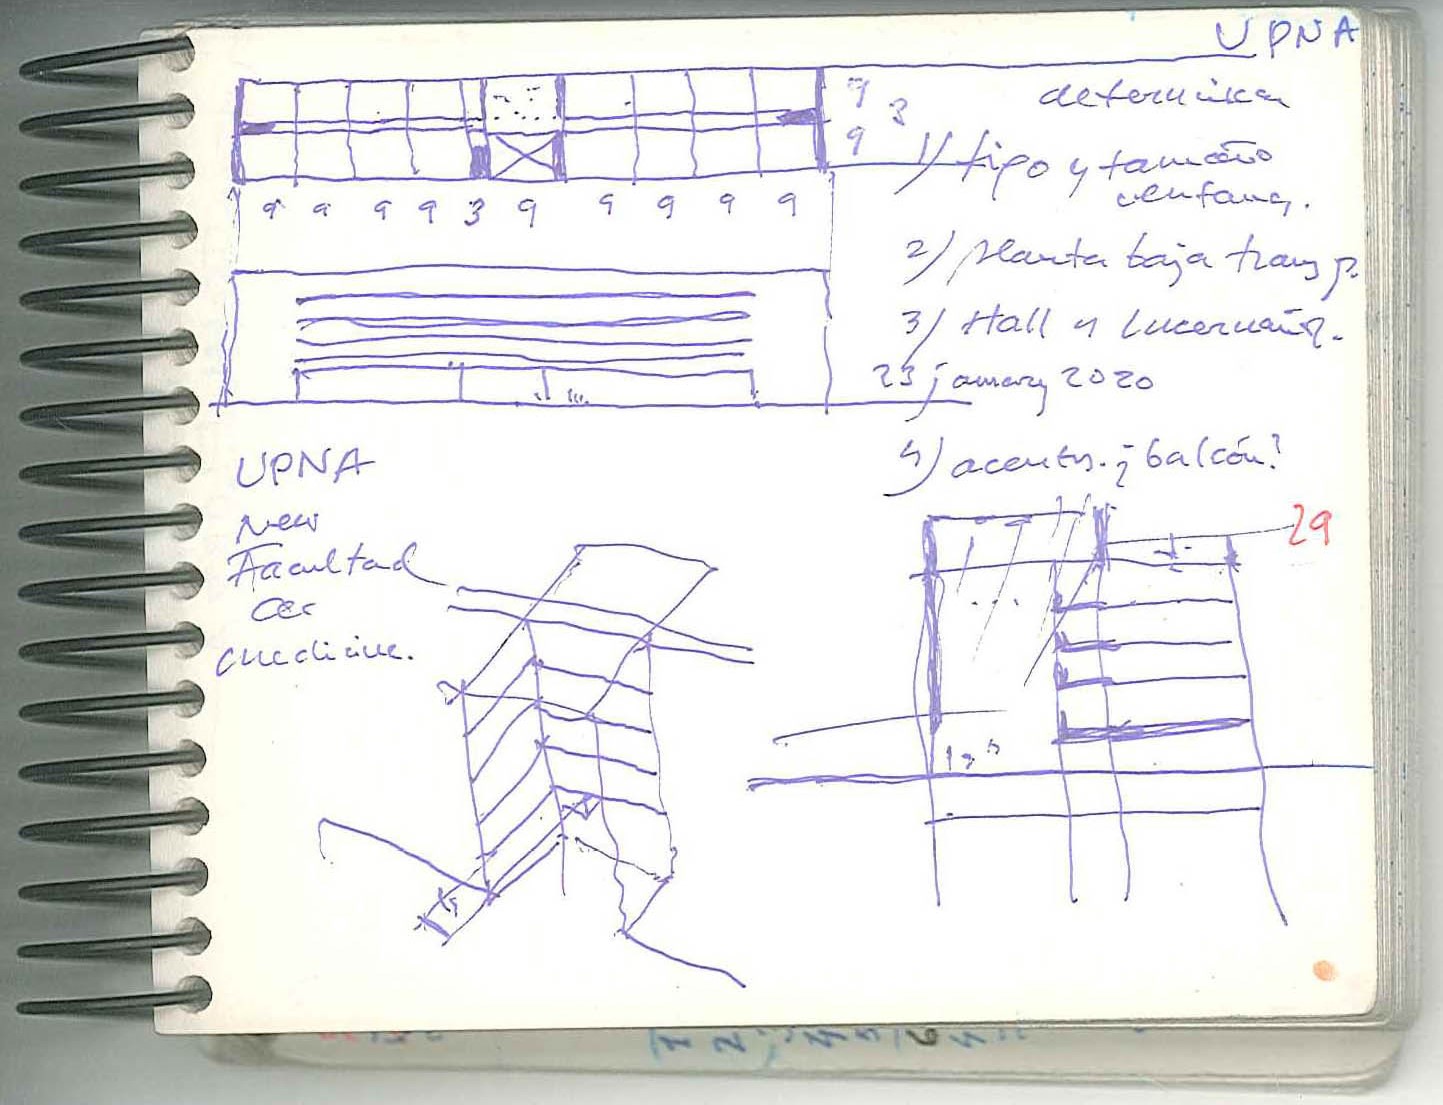 UPNA
determinar
9
3
9
1) tipo y tamaño
ventana.
9 9 9 9 3 9 9 9 9 9
2) planta baja transp.
3) Hall y
23 january 2020
4) acentos. ¿balcón?
UPNA
New
Facultad
de
medicine.
29